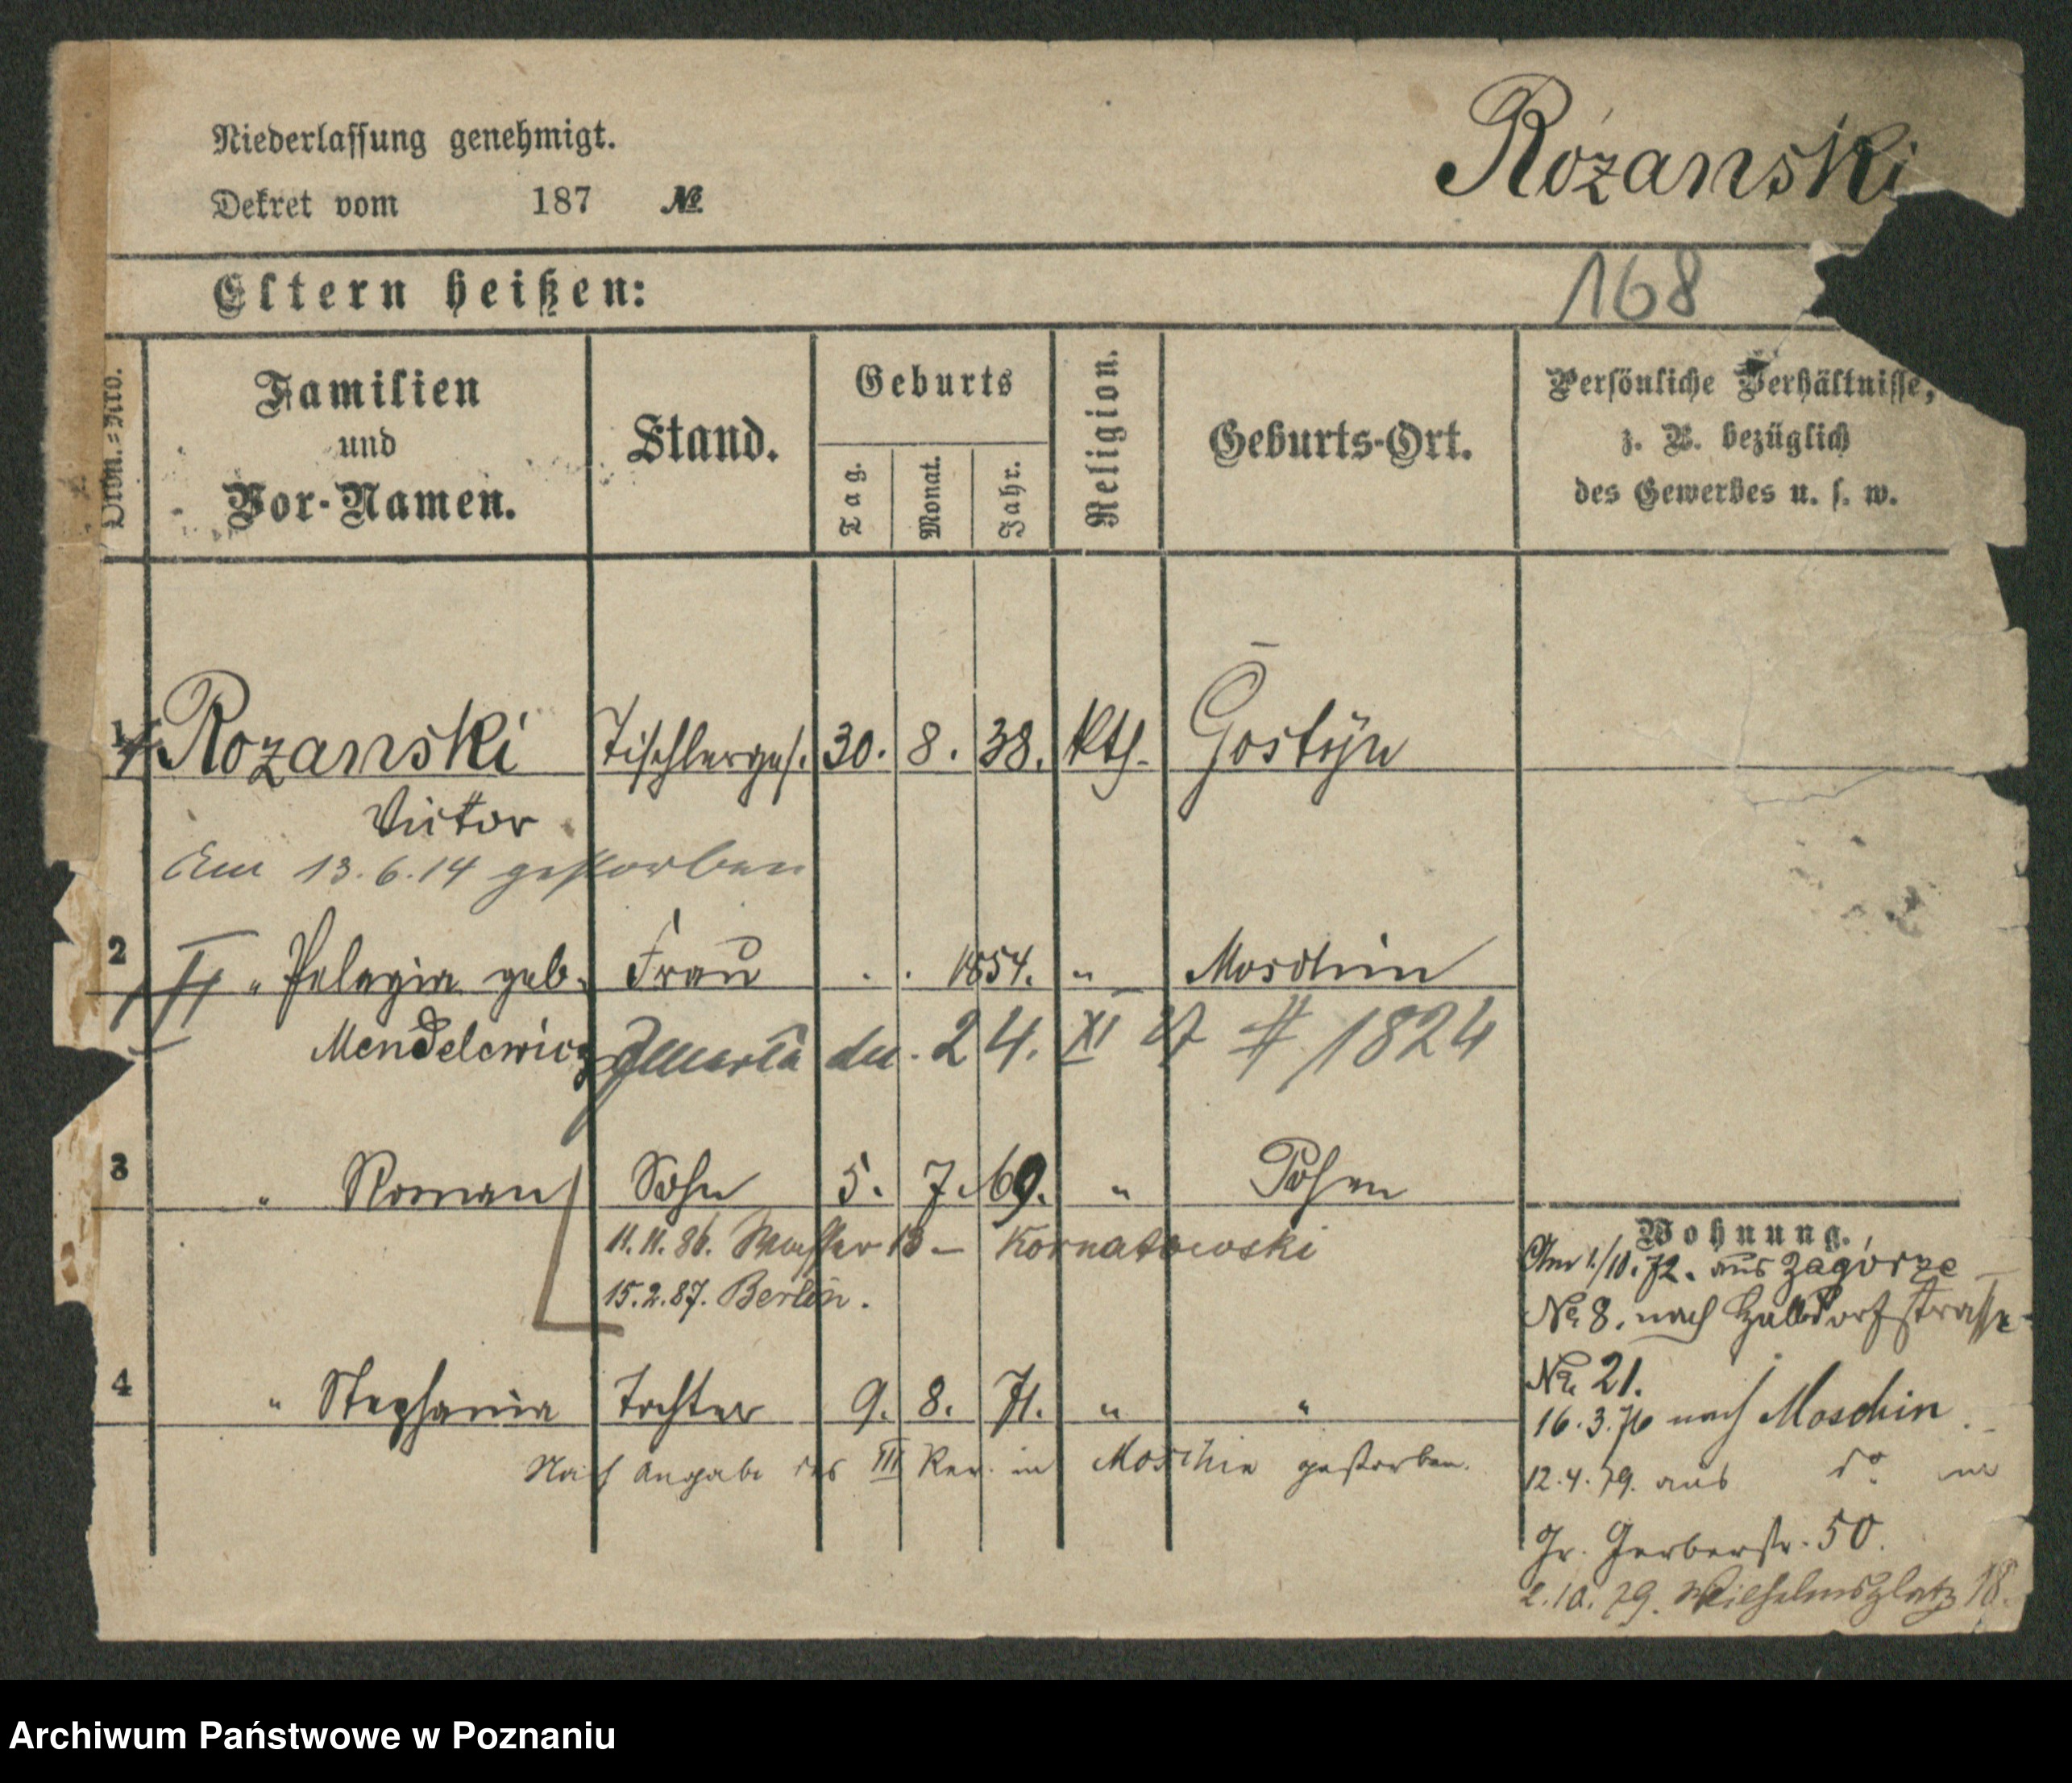 Rózanski
Niederlassung genehmigt.
Dekret vom 187 №
Eltern heißen:
168
Ordn.=Nro.
Familien
und
Vor-Namen.
Stand.
Geburts
Tag.
Monat.
Jahr.
Religion.
Geburts-Ort.
Persönliche Verhältnisse,
z. B. bezüglich
des Gewerbes u. s. w.
1 Rozanski Tischlerges. 30. 8. 38. kth. Gostyn
Victor
Am 13.6.14 gestorben
2 " Pelagia geb. Frau . . 1854. " Moschin
Mendelewicz
Zmarła dn. 24. XI 27 # 1824
3 " Roman Sohn 5. 7. 69. " Posen
11.11.86. Wasserstr 13 – Kornatowski
15.2.87. Berlin.
4 " Stephania Tochter 9. 8. 71. " "
Nach Angabe des III Rev. in Moschin gestorben.
Wohnung.
Am 1/10. 72. aus Zagórze
№ 8. nach Halbdorfstrasse
№ 21.
16.3.76 nach Moschin
12.4.79. aus do in
Gr. Gerberstr. 50.
2.10.79. Wilhelmsplatz 18.
Archiwum Państwowe w Poznaniu